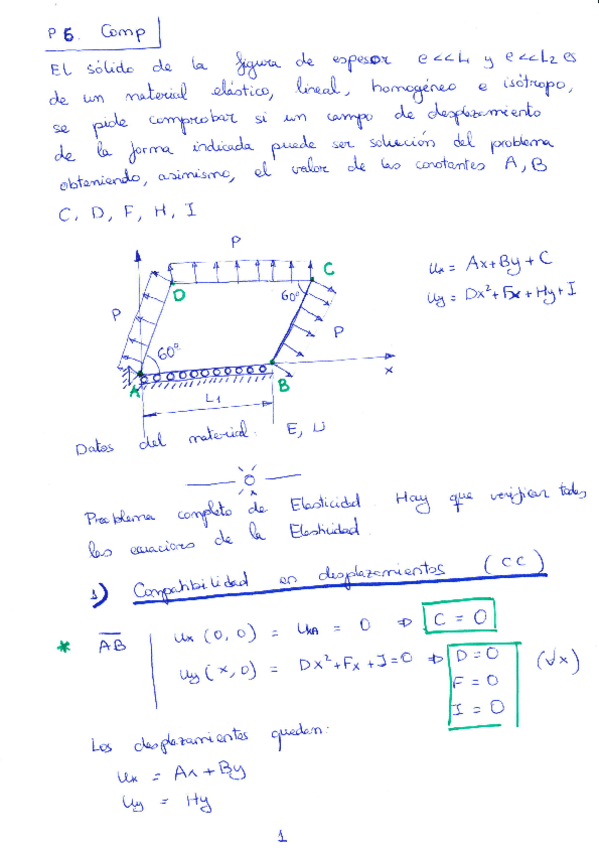 P 5. Comp
EL sólido de la figura de espesor e<<L1 y e<<L2 es
de un material elástico, lineal, homogéneo e isótropo,
se pide comprobar si un campo de desplazamiento
de la forma indicada puede ser solución del problema
obteniendo, asimismo, el valor de las constantes A, B
C, D, F, H, I
P
C
ux = Ax+By+C
D
60°
uy = Dx²+Fx+Hy+I
P
P
60°
x
A
B
L1
Datos del material: E, ν
Problema completo de Elasticidad. Hay que verificar todas
las ecuaciones de la Elasticidad.
1) Compatibilidad en desplazamientos (CC)
* AB
ux (0,0) = uxA = 0 ⇒ C = 0
uy (x,0) = Dx²+Fx+I=0 ⇒ D=0 (∀x)
F = 0
I = 0
Los desplazamientos quedan:
ux = Ax+By
uy = Hy
1